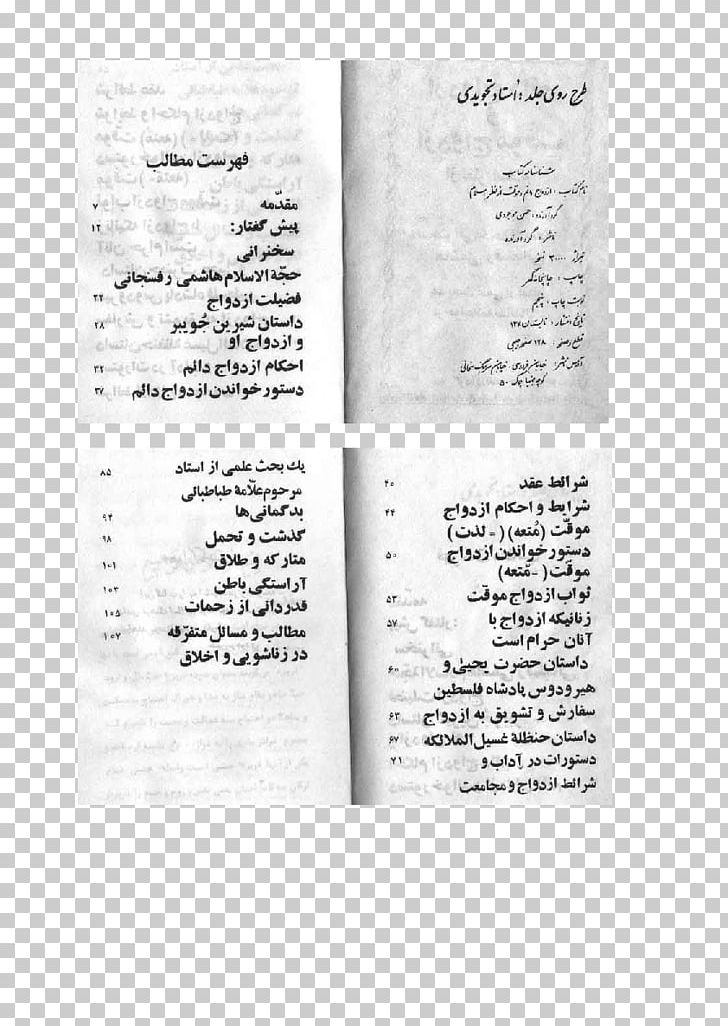 طرح روی جلد : استاد تجویدی
شناسنامه کتاب
نام کتاب : ازدواج دائم و موقت از نظر اسلام
گردآورنده : حسن موجودی
ناشر : گردآورنده
تیراژ ۳۰۰۰۰ نسخه
چاپ : چاپخانه گهر
نوبت چاپ : پنجم
قطع و صفحه : ۱۲۸ صفحه جیبی
فهرست مطالب
مقدّمه ۷
پیش گفتار: ۱۲
سخنرانی
حجّة الاسلام هاشمی رفسنجانی
فضیلت ازدواج ۲۴
داستان شیرین جُویبر ۲۸
و ازدواج او
احکام ازدواج دائم ۳۲
دستور خواندن ازدواج دائم ۳۷
شرائط عقد ۴۰
شرایط و احکام ازدواج ۴۴
موقّت (مُتعه) ( = لذت)
دستور خواندن ازدواج ۵۰
موقّت ( = مّتعه)
ثواب ازدواج موقّت ۵۳
زنانیکه ازدواج با ۵۷
آنان حرام است
داستان حضرت یحییٰ و ۶۰
هیرودوس پادشاه فلسطین
سفارش و تشویق به ازدواج ۶۳
داستان حنظلهٔ غسیل الملائکه ۶۷
دستورات در آداب و ۷۱
شرائط ازدواج و مجامعت
یك بحث علمی از استاد ۸۵
مرحوم علّامهٔ طباطبائی
بدگمانی‌ها ۹۴
گذشت و تحمل ۹۸
متارکه و طلاق ۱۰۱
آراستگی باطن ۱۰۳
قدردانی از زحمات ۱۰۵
مطالب و مسائل متفرّقه ۱۰۷
در زناشویی و اخلاق